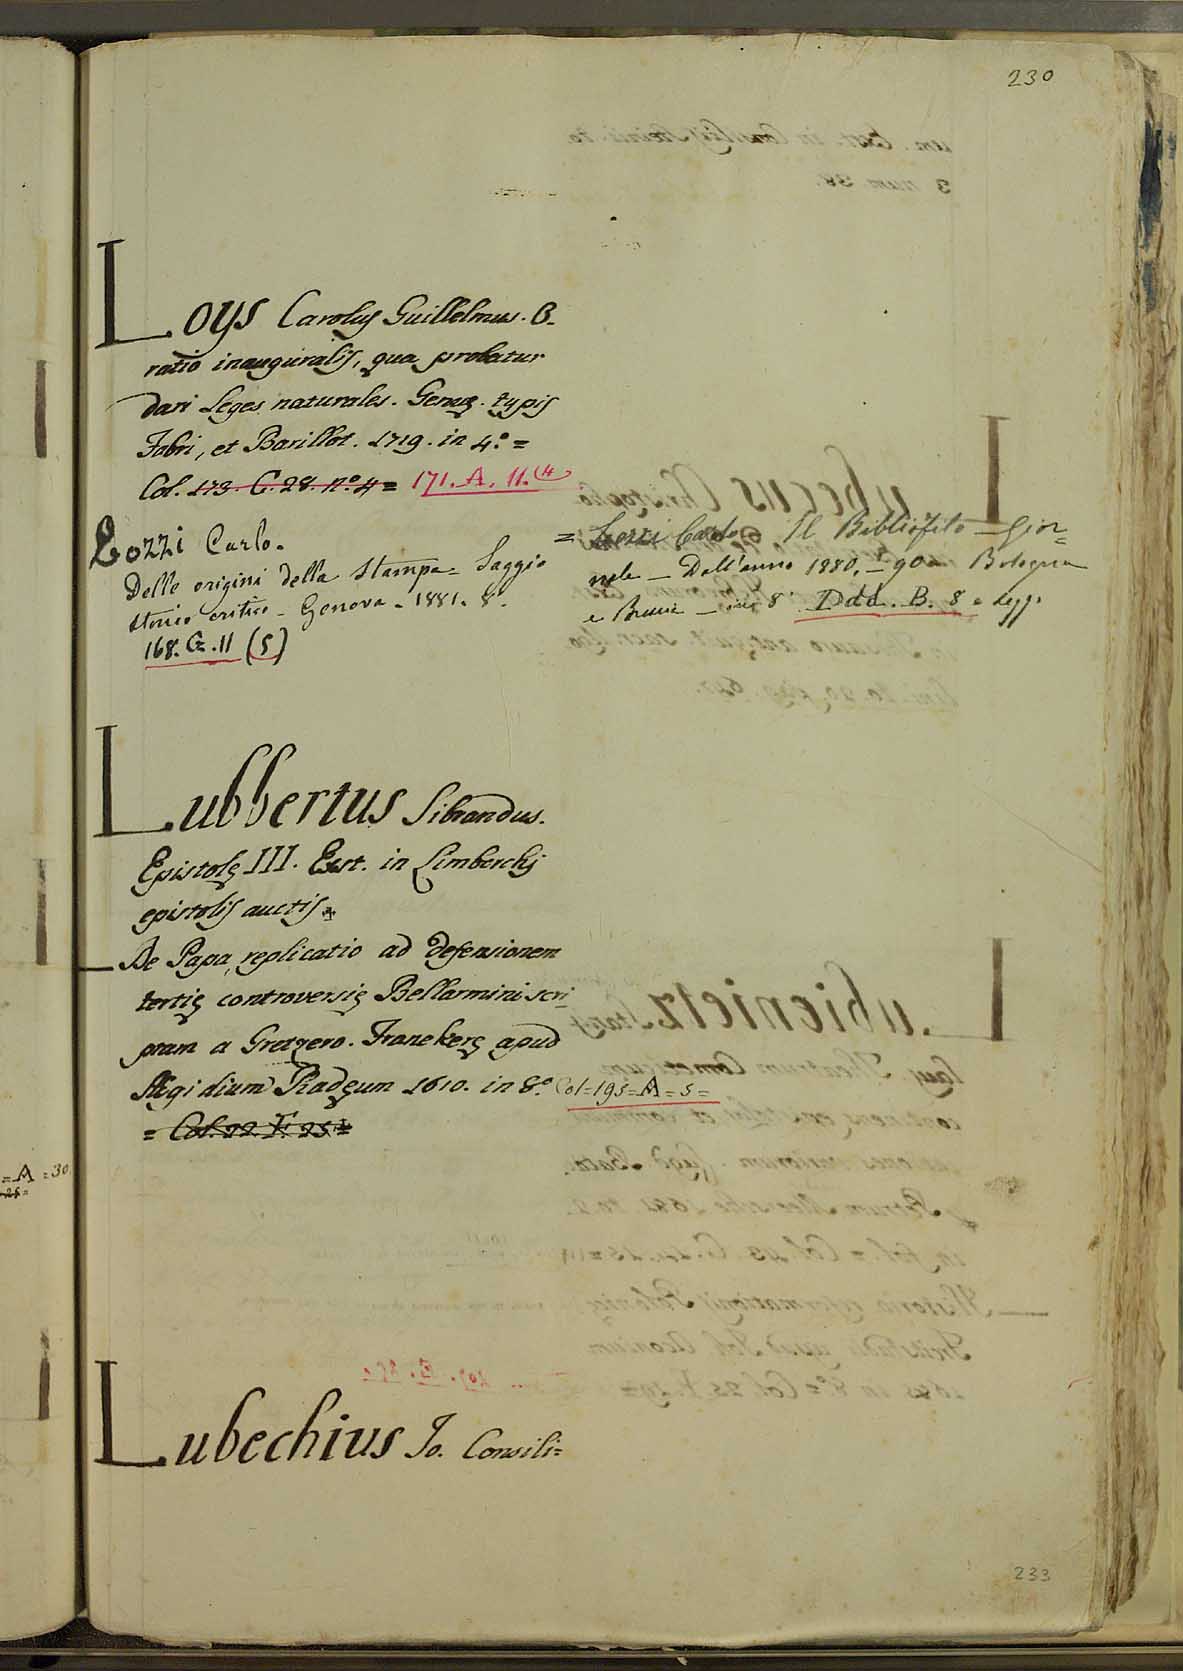 230
Loys Carolus Guillelmus. O-
ratio inauguralis, qua probatur
dari Leges naturales. Genuę. typis
Fabri, et Barillot. 1719. in 4.º =
Col. 173. C. 28. nº. 4 = 171. A. 11. (4
Lozzi Carlo.
Delle origini della Stampa = Saggio
storico critico - Genova - 1881. 8º.
168. G. 11 (5)
= Lozzi Carlo Il Bibliofilo - Gior=
nale - Dall'anno 1880, - 90 = Bologna
e - in 8º. Ddd. B. 8
Lubbertus Sibrandus.
Epistolę III. Exst. in Limberchij
epistolis auctis.
— De Papa, replicatio ad defensionem
tertię controversię Bellarmini scri-
ptam a Gretzero. Franekerę apud
Ægidium Radęum 1610. in 8.º Col=195=A=5=
= Col. 22. F. 25 =
= A = 30
Lubechius Jo. Consili=
233